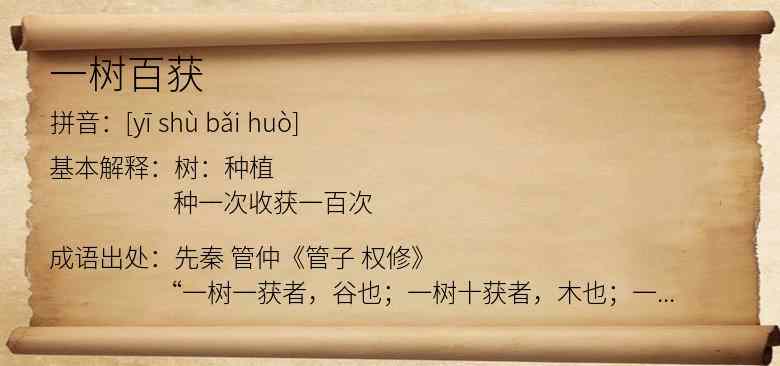 一树百获
拼音：[yī shù bǎi huò]
基本解释：树：种植
种一次收获一百次
成语出处：先秦 管仲《管子 权修》
“一树一获者，谷也；一树十获者，木也；一...